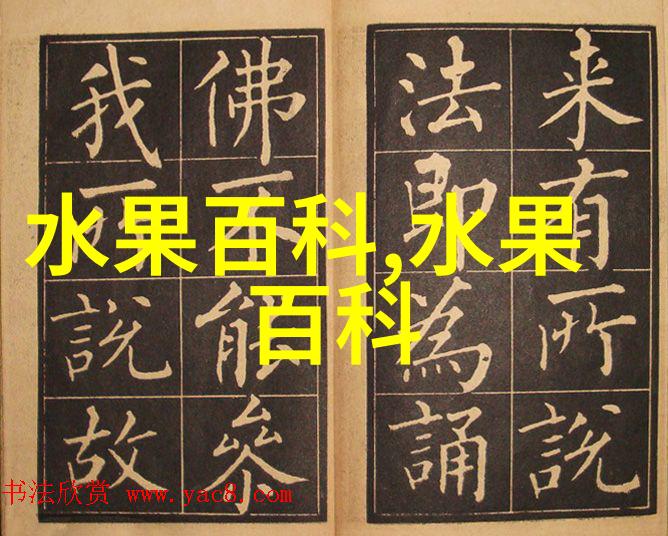 来有所說
法即為誦
佛不能叅
我所說故
水果百科,水果
百科
书法欣赏 www.yac8.com